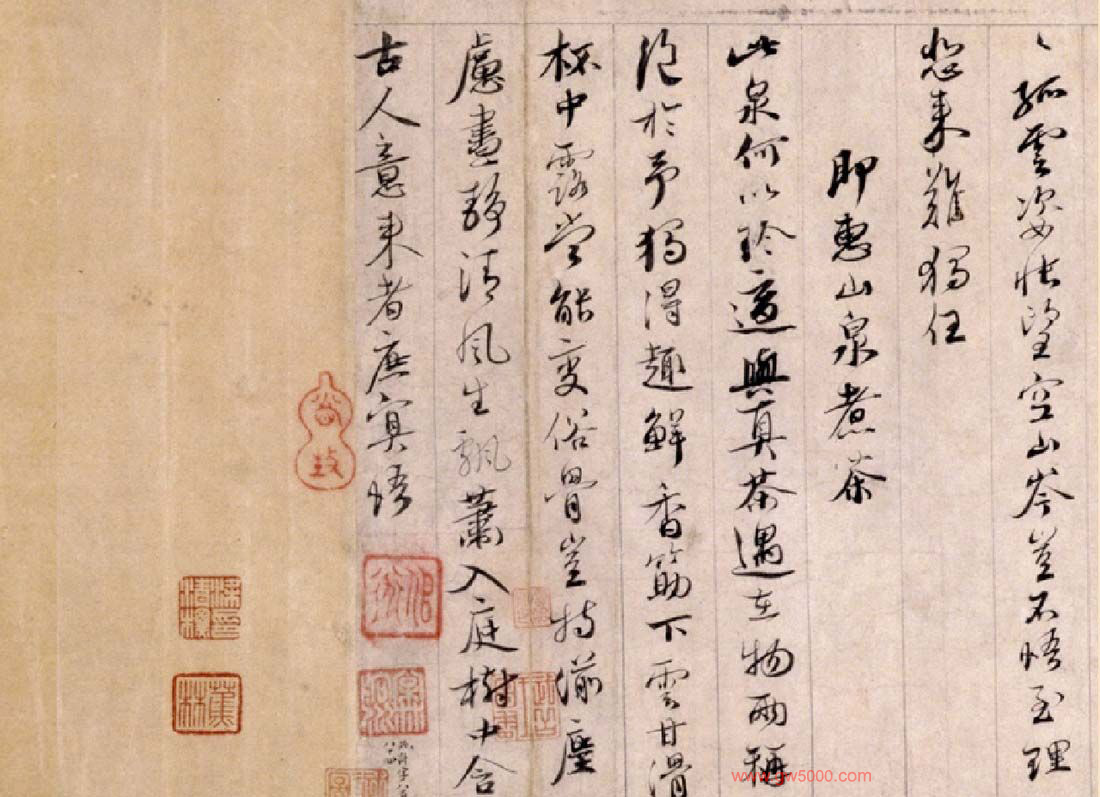 〻孤雲姿悵望空山岑豈不悟至理
悲来難獨任
即惠山泉煮茶
此泉何以珎適與真茶遇在物兩稱
絕於予獨得趣鮮香筯下雲甘滑
杯中露當能變俗骨豈特湔塵
慮晝靜清風生飄蕭入庭樹中含
古人意来者庶冥悟
蕉林
www.gw5000.com